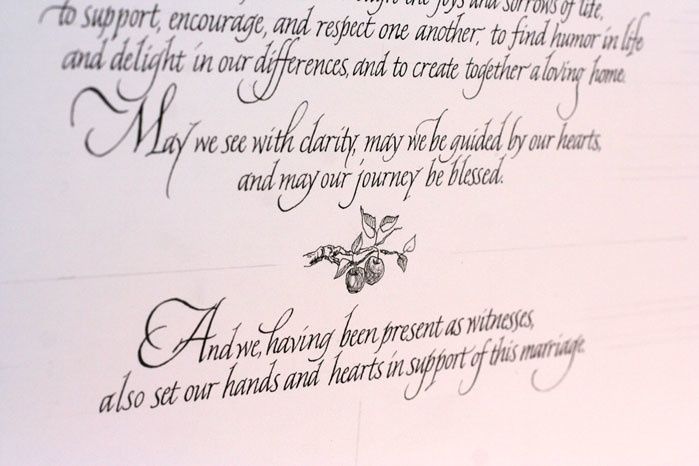 the joys and sorrows of life,
to support, encourage, and respect one another, to find humor in life
and delight in our differences, and to create together a loving home.
May we see with clarity, may we be guided by our hearts,
and may our journey be blessed.
And we, having been present as witnesses,
also set our hands and hearts in support of this marriage.